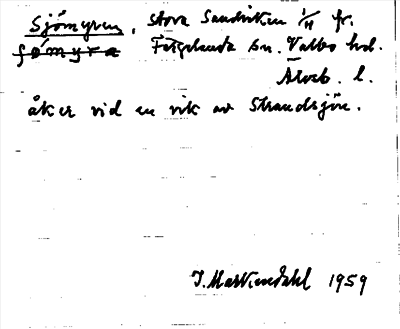 Sjömyren, Stora Sandviken 1/4 fr.
sö̀myra Färgelanda sn. Valbo hd.
Älvsb. l.
åker vid en vik av Strandsjön.
J. Martinsdahl 1959